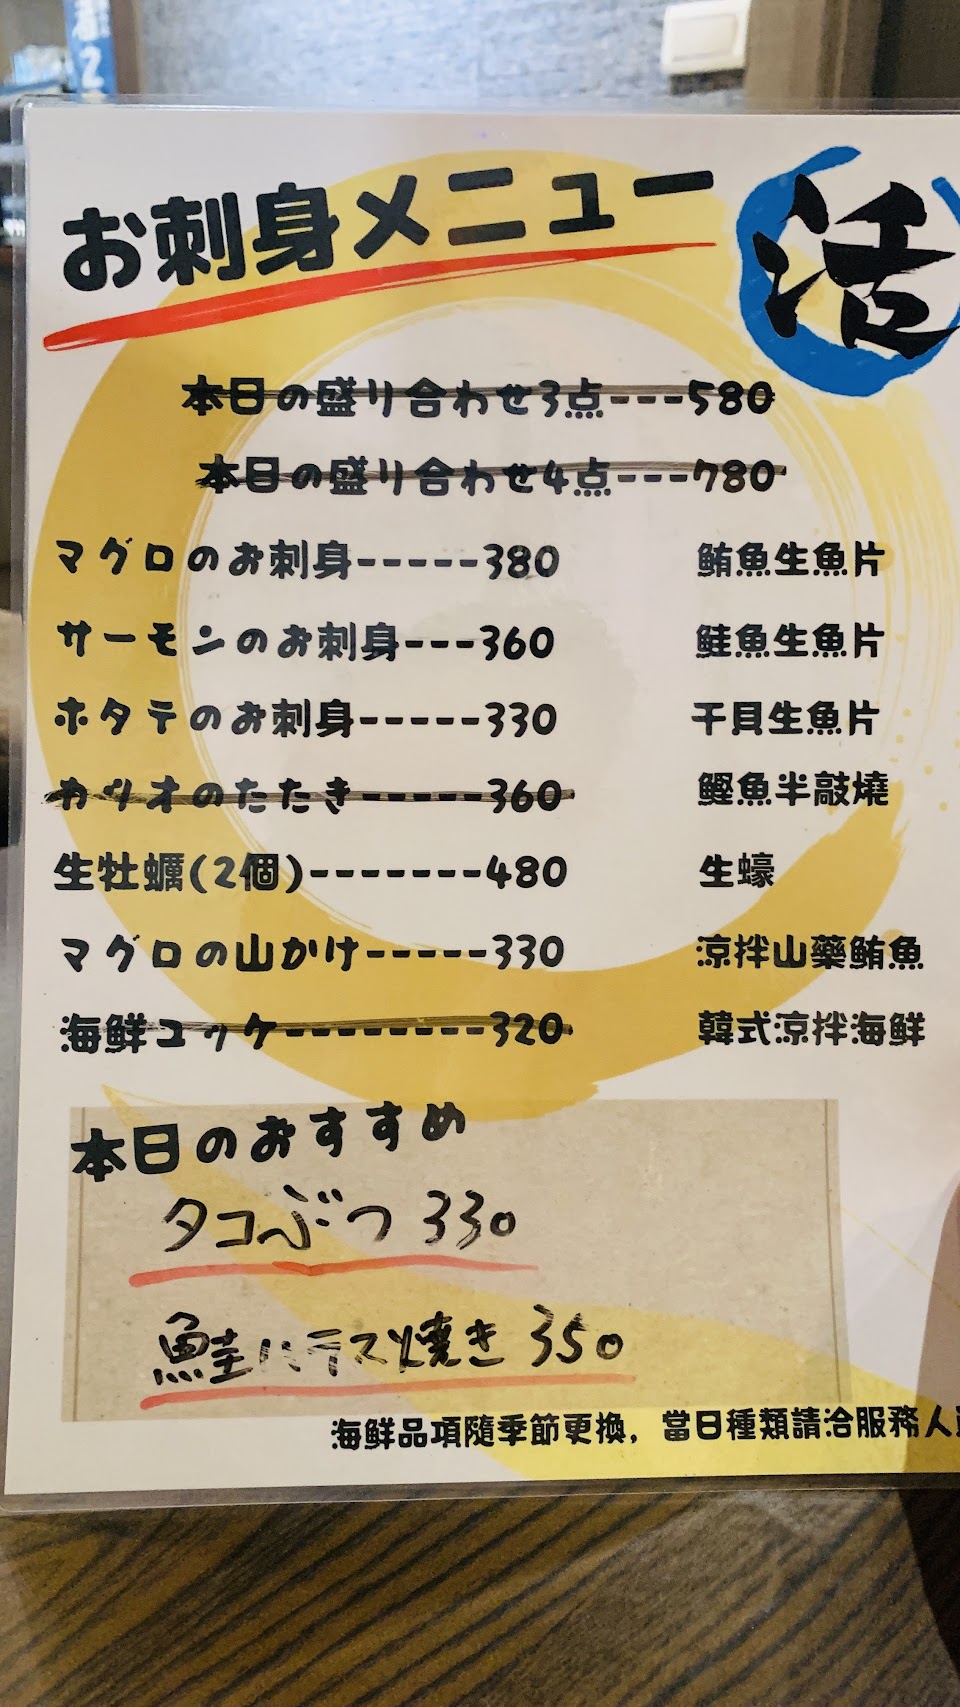 お刺身メニュー
活
本日の盛り合わせ3点---580
本日の盛り合わせ4点---780
マグロのお刺身-----380 鮪魚生魚片
サーモンのお刺身---360 鮭魚生魚片
ホタテのお刺身-----330 干貝生魚片
カツオのたたき-----360 鰹魚半敲燒
生牡蠣(2個)-------480 生蠔
マグロの山かけ-----330 涼拌山藥鮪魚
海鮮ユッケ--------320 韓式涼拌海鮮
本日のおすすめ
タコぶつ 330
鮭ハラス焼き 350
海鮮品項隨季節更換，當日種類請洽服務人